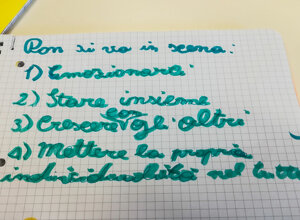 Pon si va in scena:
1) Emozionarci
2) Stare insieme
3) Crescere con gli altri
4) Mettere la propria
individualità nel tutto